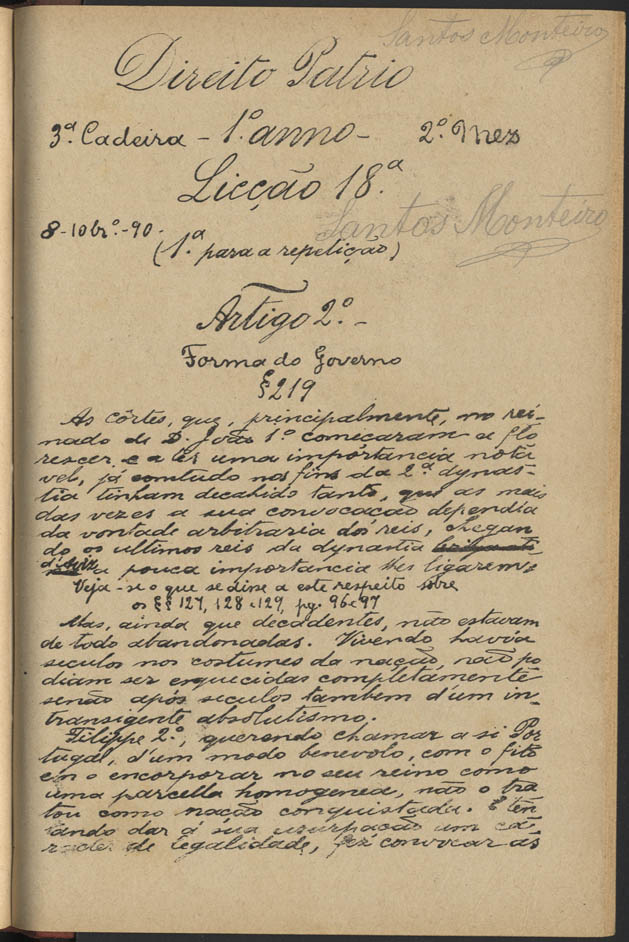 Santos Monteiro
Direito Patrio
3ª Cadeira - 1º anno - 2º Mez
Licção 18.ª
8-10br.º-90.
Santos Monteiro
(1.ª para a repetição)
Artigo 2.º -
Forma do Governo
§ 219
As côrtes, que, principalmente, no rei-
nado de D. João 1º começaram a flo
rescer e a ter uma importancia nota
vel, já comtudo nos fins da 2.ª dynas-
tia tinham decahido tanto, que as mais
das vezes a sua convocação dependia
da vontade arbitraria dos reis, chegan
do os ultimos reis da dynastia
d'Aviz a pouca importancia lhes ligarem.
Veja-se o que se disse a este respeito sobre
os §§ 127, 128 e 129, pg. 96 e 97
Mas, ainda que decadentes, não estavam
de todo abandonadas. Vivendo havia
seculos nos costumes da nação, não po
diam ser esquecidas completamente
senão após seculos tambem d'um in-
transigente absolutismo.
Filippe 2.º, querendo chamar a si Por
tugal, d'um modo benevolo, com o fito
em o encorporar no seu reino como
uma parcella homogenea, não o tra
tou como nação conquistada. E ten
tando dar á sua usurpação um ca-
racter de legalidade, fez convocar as